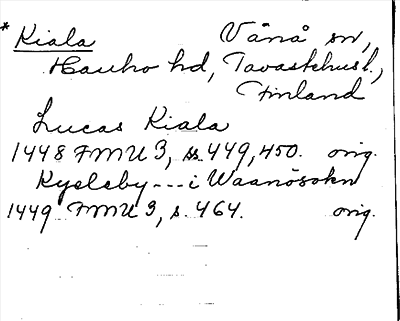 * Kiala Vånå sn,
Hauho hd, Tavastehusl.,
Finland
Lucas Kiala
1448 FMU 3, ss. 449, 450. orig.
Kyeleby --- i Waanösokn
1449 FMU 3, s. 464. orig.